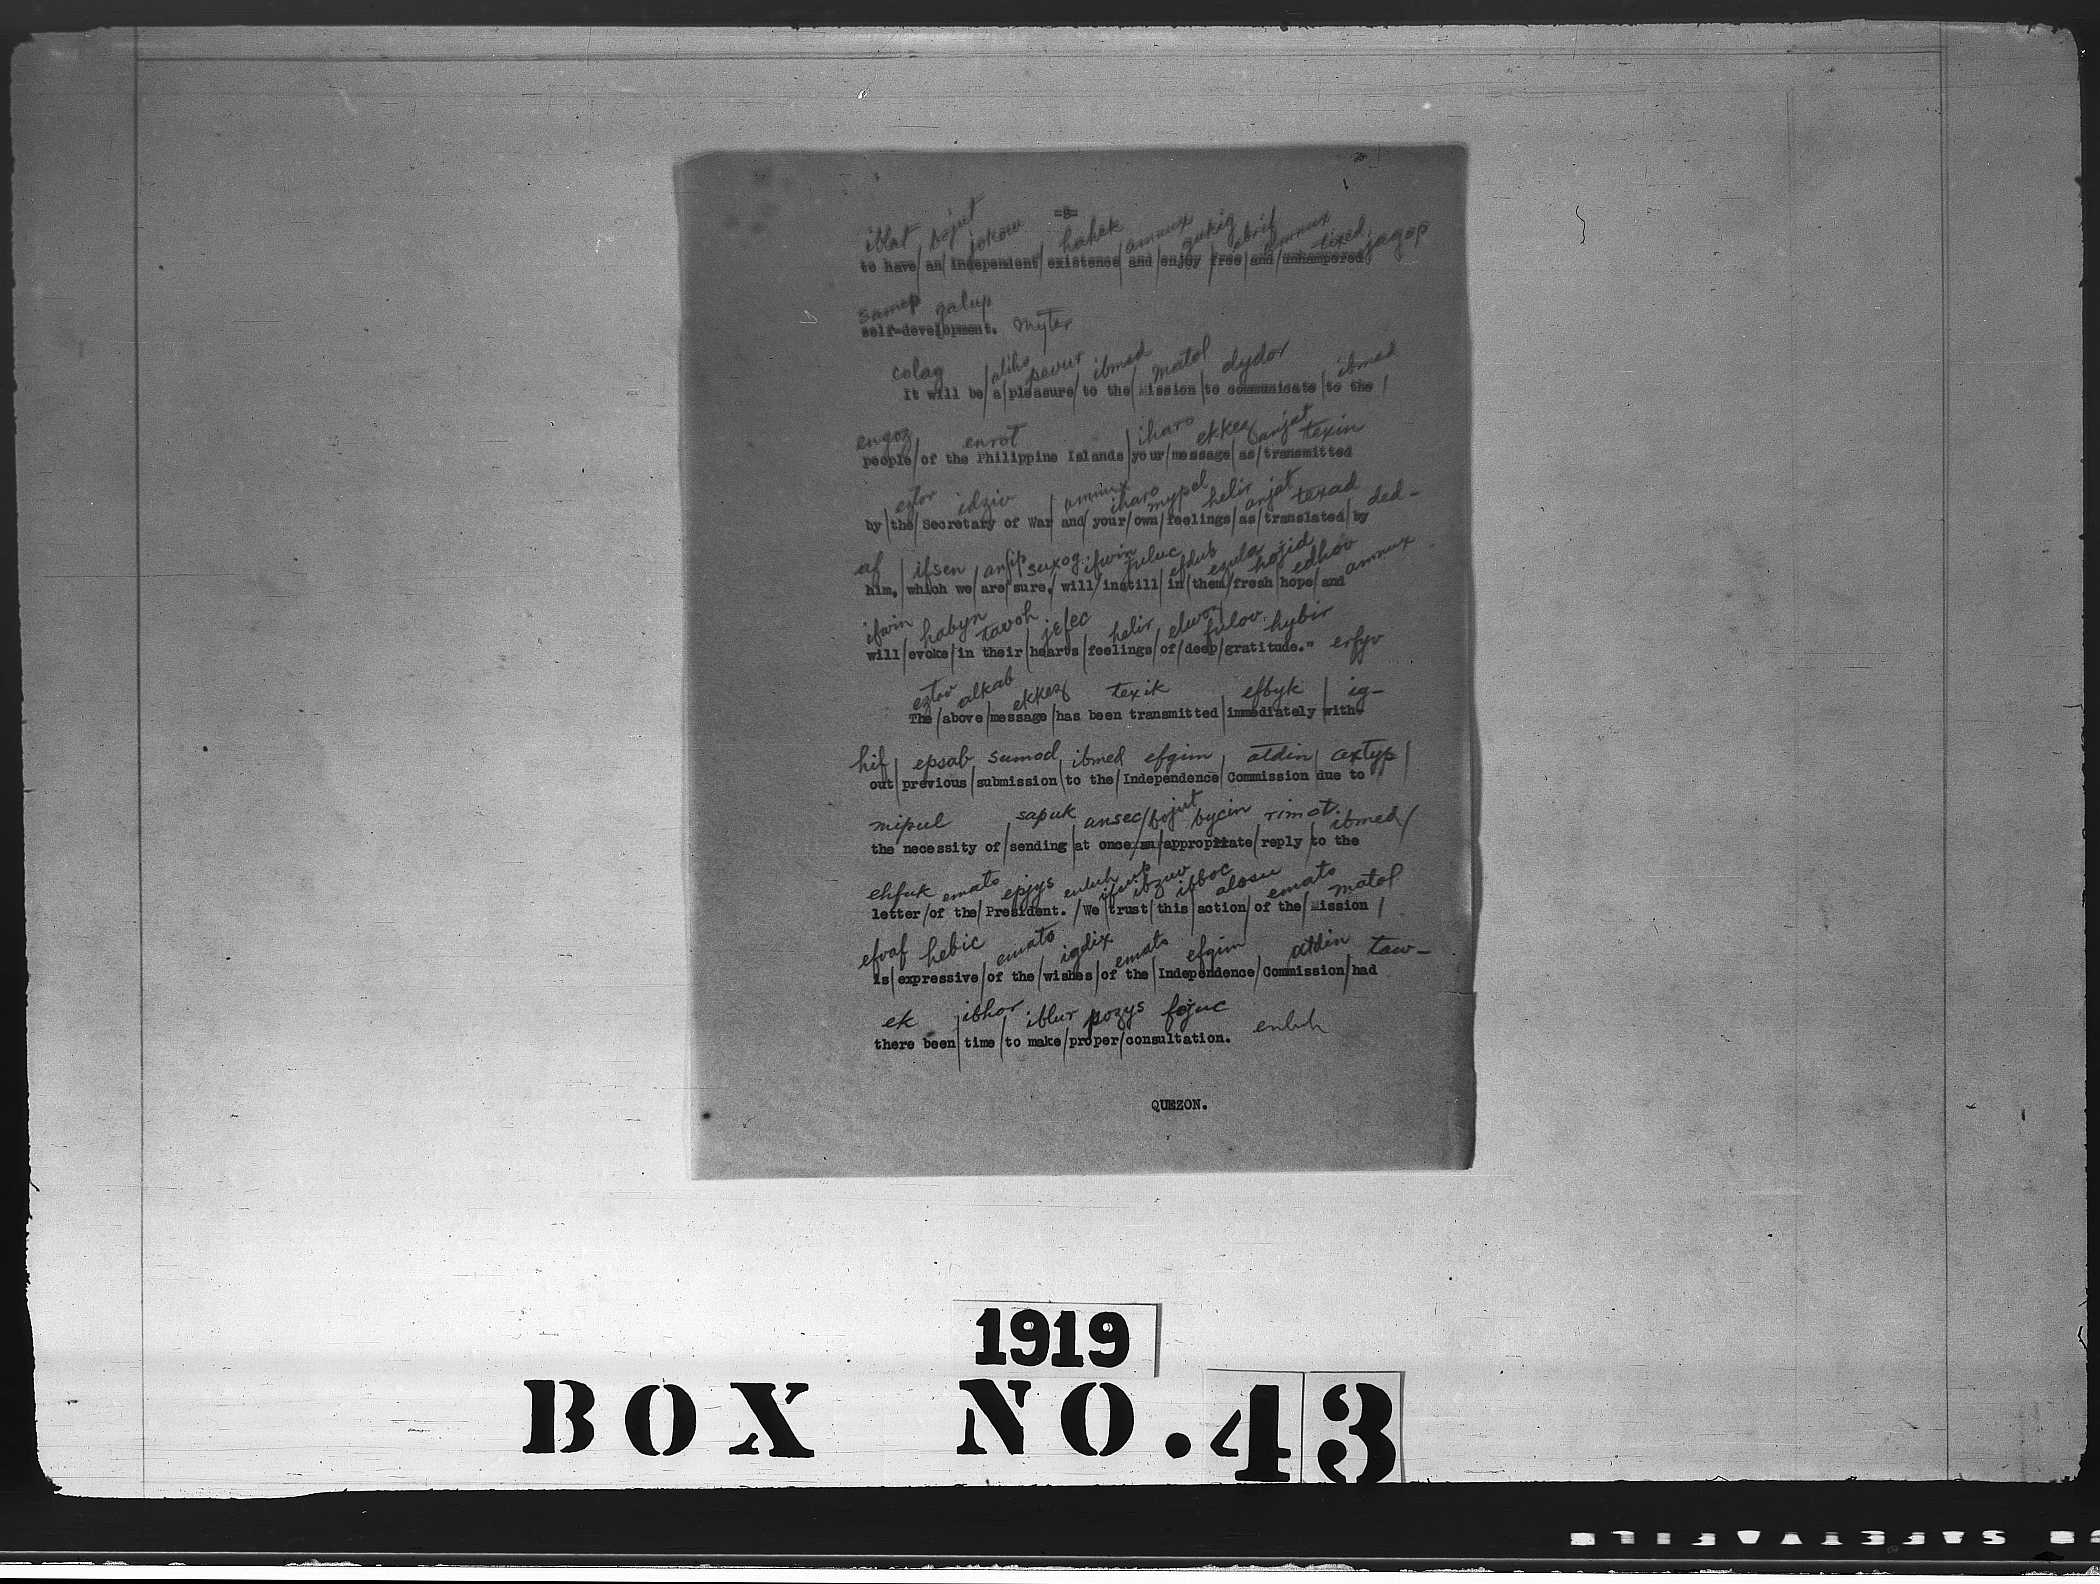 -8-
iblat bojut jokow hahek amnux gukig abrif amnux lixed jagop
to have/ an/ independent/ existence/ and/ enjoy/ free/ and/ unhampered/
samep galup
self-development. myter
colag aliho povur ibmed matol dydor ibmed
It will be/ a/ pleasure/ to the/ Mission/ to communicate/ to the/
engoz enrot iharo ekkez anjat texin
people/ of the Philippine Islands/ your/ message/ as/ transmitted
eztov idziv amnux iharo mypel helir anjat texad ded-
by/ the/ Secretary of War/ and/ your/ own/ feelings/ as/ translated/ by
af ifsen suxog ifwin efdub ezula hojid edhov amnux
him,/ which we/ are/ sure,/ will/ instill/ in/ them/ fresh/ hope/ and
ifwin habyn tavoh jelec helir fulov hybir
will/ evoke/ in their/ hearts/ feelings/ of/ deep/ gratitude." erfyv
eztov alkab ekkez texik efbyk ig-
The/ above/ message/ has been transmitted/ immediately/ with-
hif epsab sumod ibmed efgim atdin axtyp
out/ previous/ submission/ to the/ Independence/ Commission/ due to
mipul sapuk ansec bojut bycin rimot ibmed
the necessity of/ sending/ at once/ an/ appropriate/ reply/ to the
ehfuk emato epjys enluh ibzuv ifboc alosu emato matol
letter/ of the/ President./ We/ trust/ this/ action/ of the/ Mission/
efvaf hebic emato igdix emato efgim atdin taw-
is/ expressive/ of the/ wishes/ of the/ Independence/ Commission/ had
ek ibhor iblur pozys fojuc
there been/ time/ to make/ proper/ consultation. enluh
QUEZON.
1919
BOX NO. 43